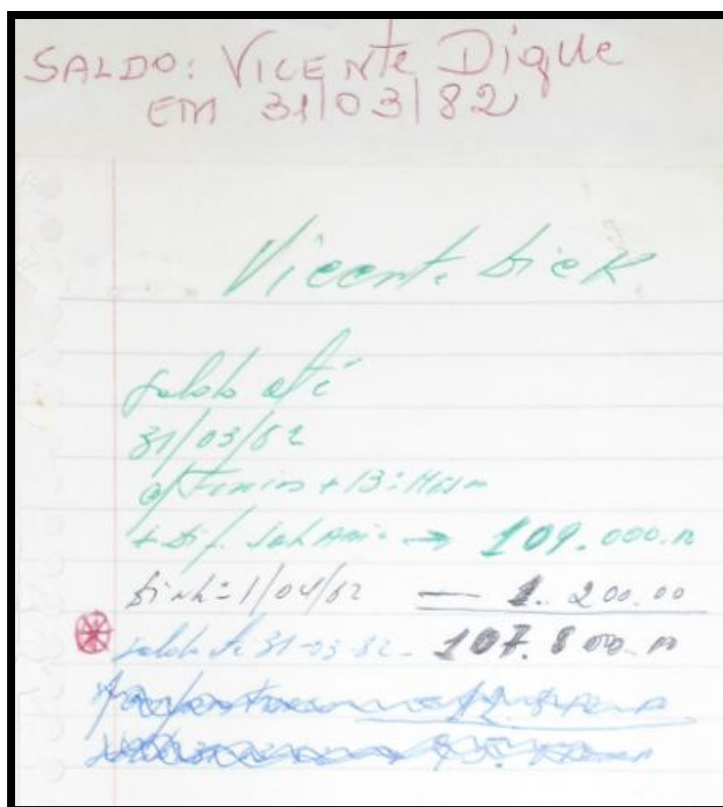 SALDO: VICENTE DIQUE
EM 31/03/82
Vicente Dick
saldo até
31/03/82
c/Ferias + 13º
+ Dif. → 109.000.00
1/04/82 — 1.200.00
saldo de 31-03-82 - 107.800.00